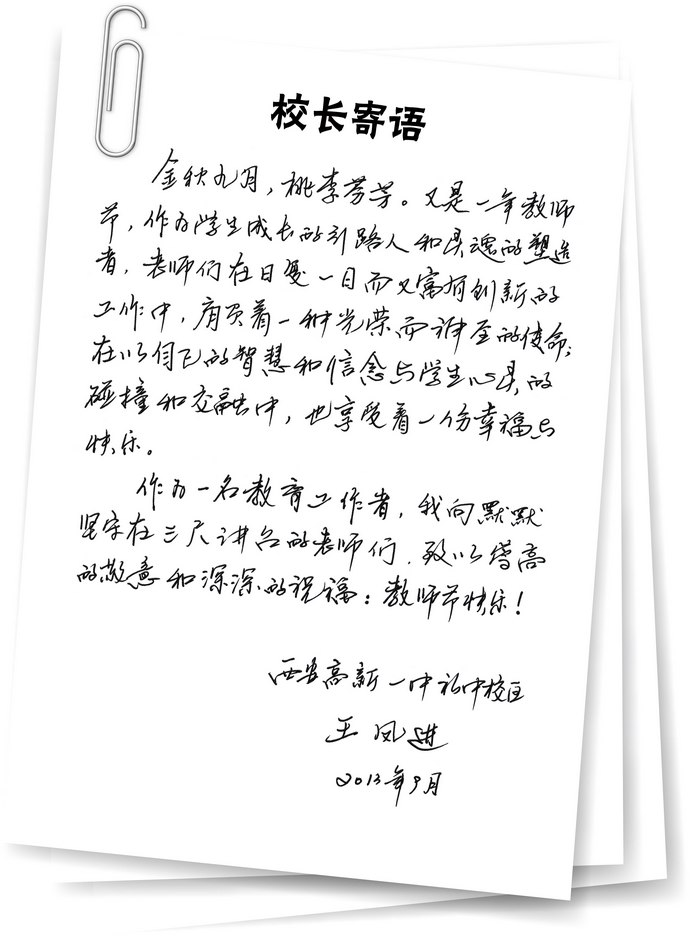 校长寄语
金秋九月，桃李芬芳。又是一年教师
节，作为学生成长的引路人和灵魂的塑造
者，老师们在日复一日而又富有创新的
工作中，肩负着一种光荣而神圣的使命；
在以自己的智慧和信念与学生心灵的
碰撞和交融中，也享受着一份幸福与
快乐。
作为一名教育工作者，我向默默
坚守在三尺讲台的老师们，致以崇高
的敬意和深深的祝福：教师节快乐！
西安高新一中初中校区
王凤进
2013年9月